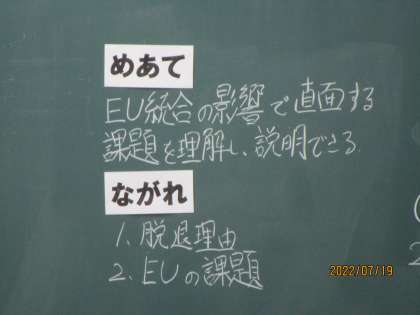 めあて
EU統合の影響で直面する
課題を理解し、説明できる
ながれ
1. 脱退理由
2. EUの課題
2022/07/19